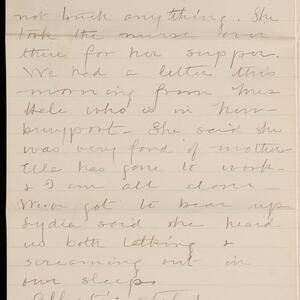 not touch anything. She
took the nurse over
there for her supper.
We had a letter this
morning from Mrs
Hale who is in New-
buryport. She said she
was very fond of mother
Ella has gone to work
& I am all alone
We've got to bear up
Lydia said she heard
us both talking &
screaming out in
our sleep